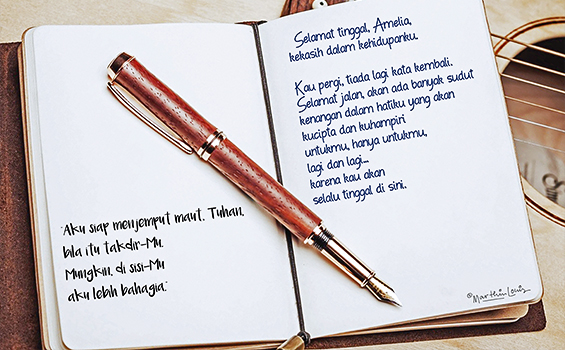 "Aku siap menjemput maut, Tuhan,
bila itu takdir-Mu.
Mungkin, di sisi-Mu
aku lebih bahagia."
Selamat tinggal, Amelia,
kekasih dalam kehidupanku.
Kau pergi, tiada lagi kata kembali.
Selamat jalan, akan ada banyak sudut
kenangan dalam hatiku yang akan
kucipta dan kuhampiri
untukmu, hanya untukmu,
lagi dan lagi...
karena kau akan
selalu tinggal di sini.
©Marthin Louis